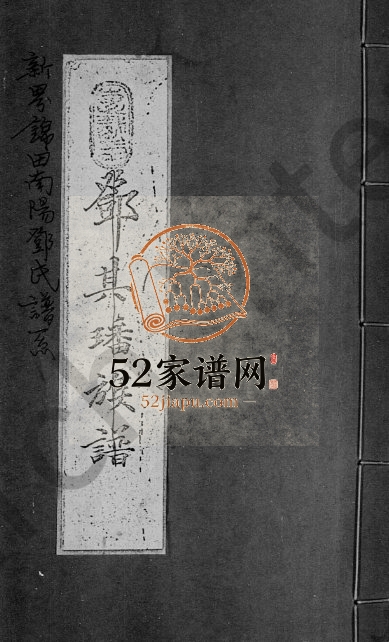 新界錦田南陽鄧氏譜系
鄧其璠族譜
52家谱网
52jiapu.com